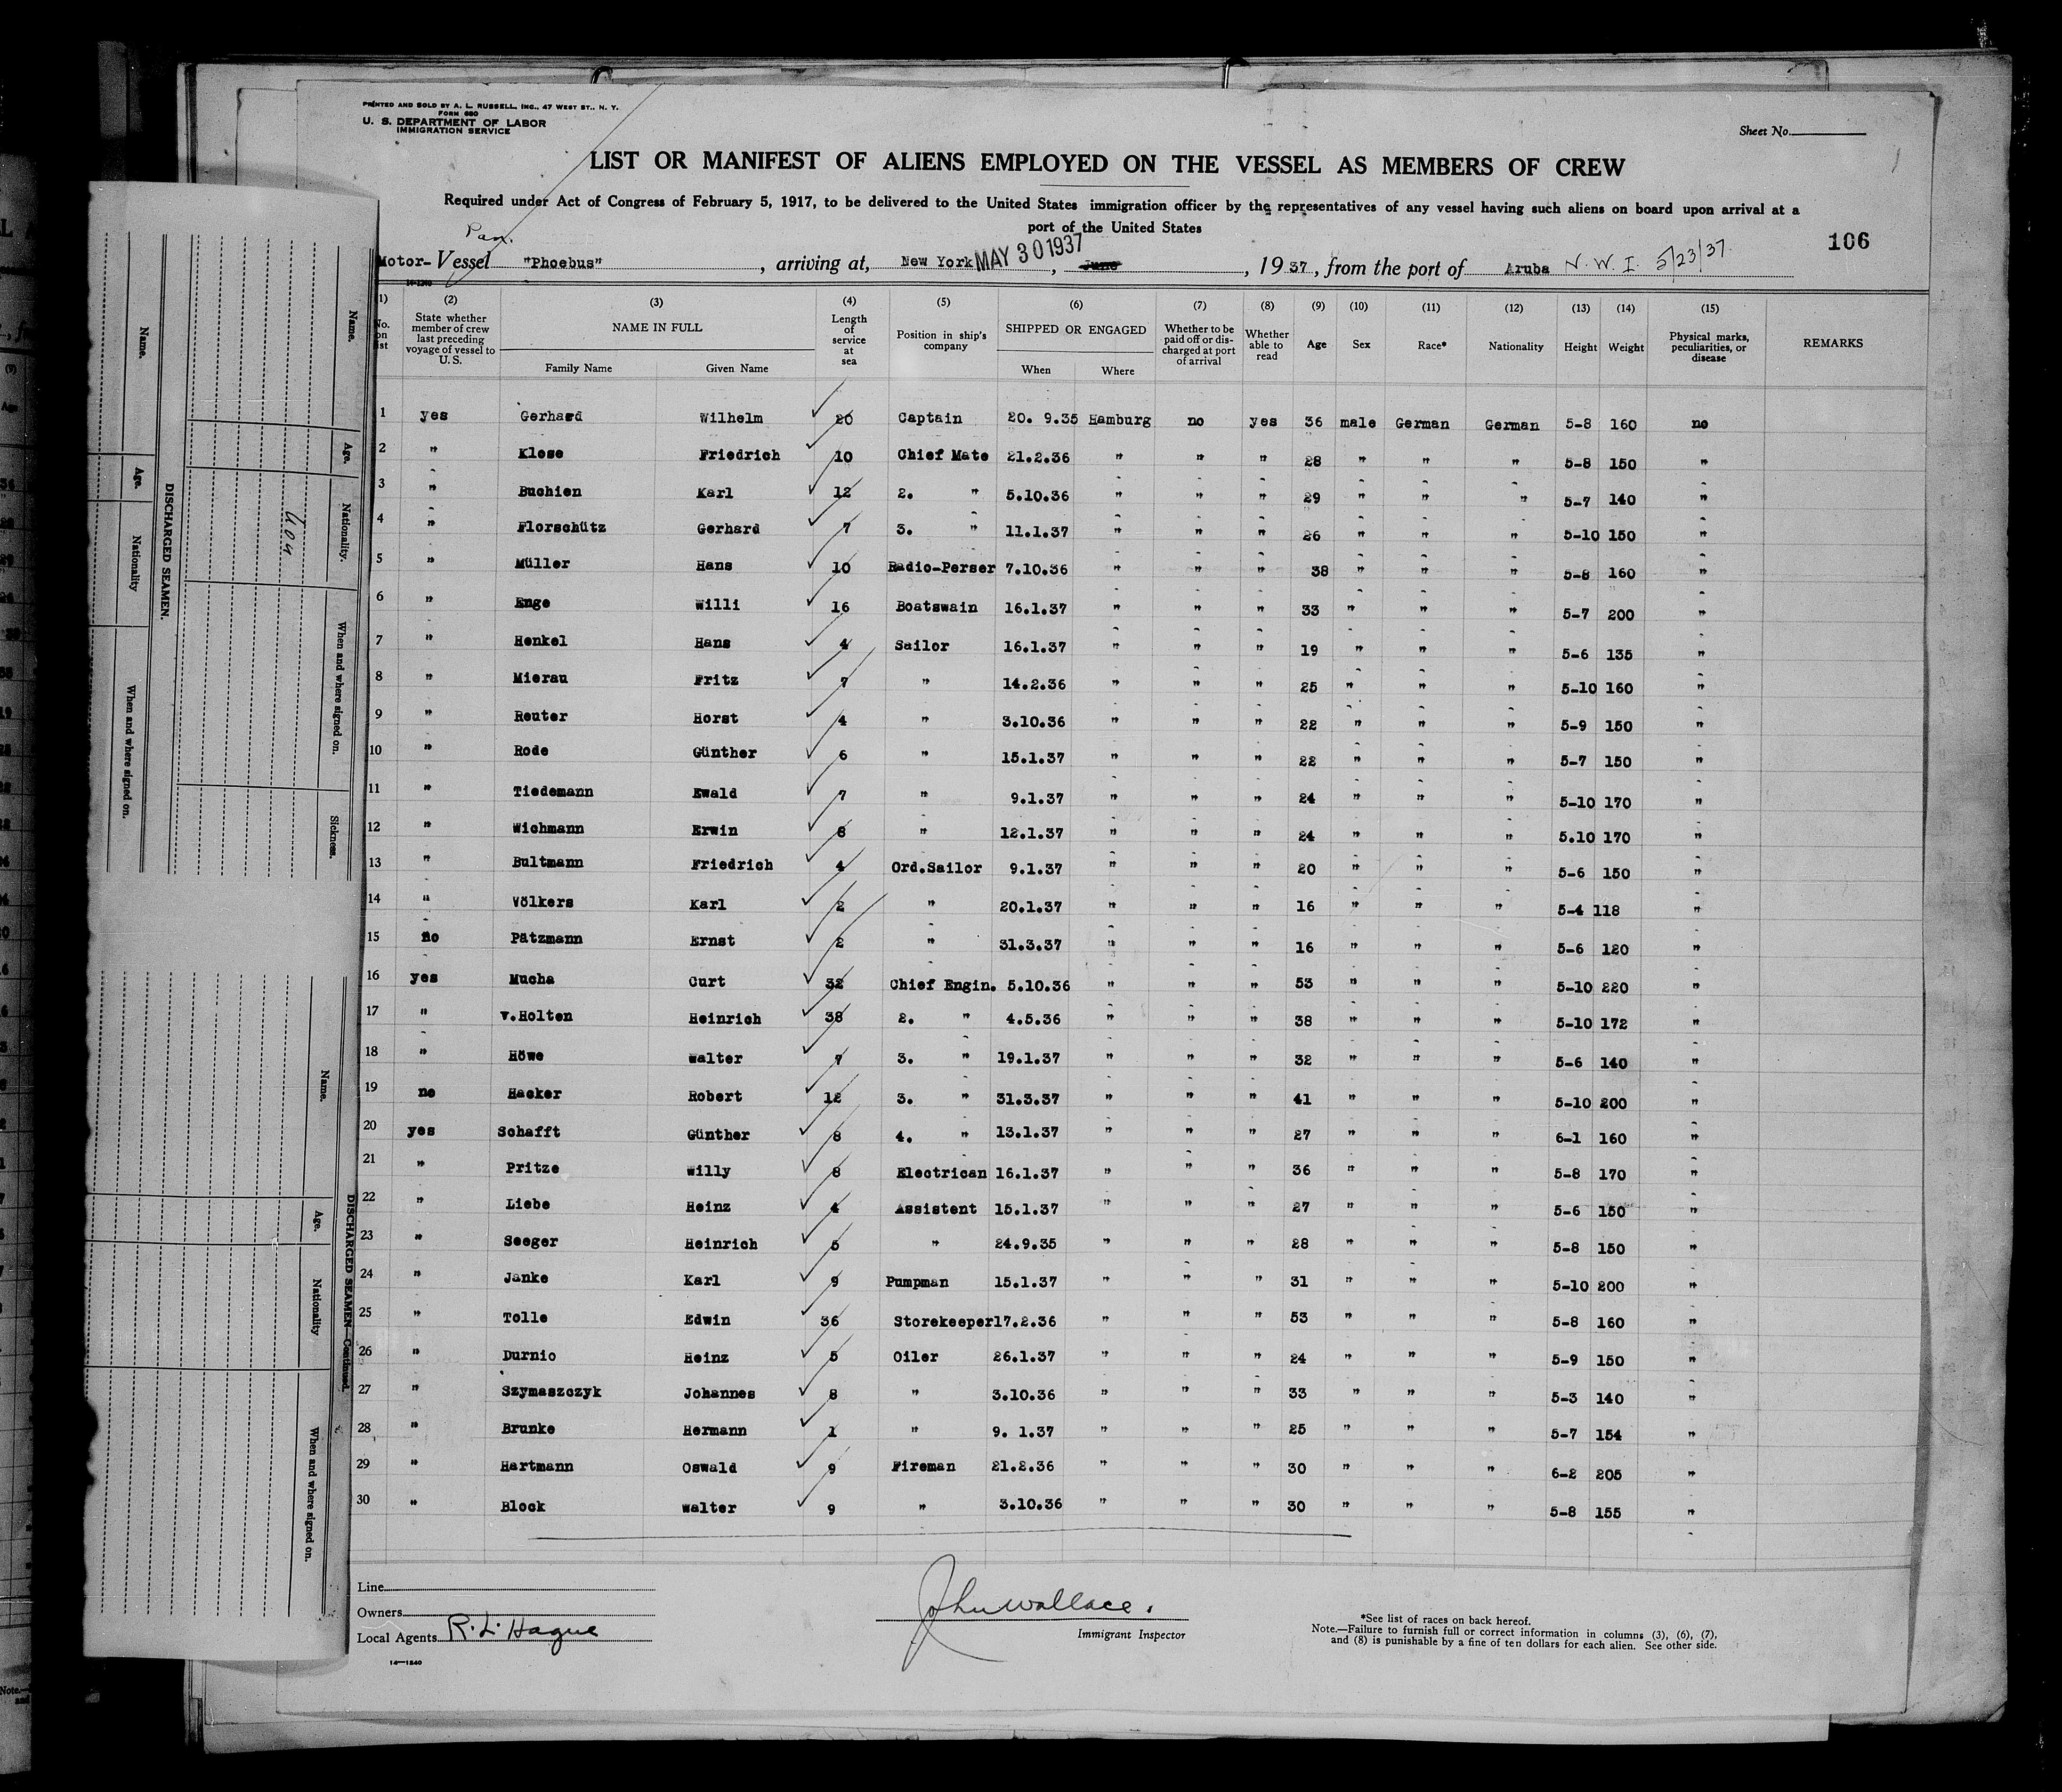 PRINTED AND SOLD BY A. L. RUSSELL, INC., 47 WEST ST., N. Y.
FORM 680
U. S. DEPARTMENT OF LABOR
IMMIGRATION SERVICE
Sheet No.
LIST OR MANIFEST OF ALIENS EMPLOYED ON THE VESSEL AS MEMBERS OF CREW
Required under Act of Congress of February 5, 1917, to be delivered to the United States immigration officer by the representatives of any vessel having such aliens on board upon arrival at a
port of the United States
106
Pan.
Motor-Vessel "Phoebus", arriving at, New York MAY 30 1937, June, 1937, from the port of Aruba N. W. I. 5/23/37.
14-1240
(1) (2) (3) (4) (5) (6) (7) (8) (9) (10) (11) (12) (13) (14) (15)
No. on list State whether member of crew last preceding voyage of vessel to U. S. NAME IN FULL Family Name Given Name Length of service at sea Position in ship's company SHIPPED OR ENGAGED When Where Whether to be paid off or discharged at port of arrival Whether able to read Age Sex Race* Nationality Height Weight Physical marks, peculiarities, or disease REMARKS
1 yes Gerhard Wilhelm 20 Captain 20. 9.35 Hamburg no yes 36 male German German 5-8 160 no
2 " Klose Friedrich 10 Chief Mate 21.2.36 " " " 28 " " " 5-8 150 "
3 " Buchien Karl 12 2. " 5.10.36 " " " 29 " " " 5-7 140 "
4 " Florschütz Gerhard 7 3. " 11.1.37 " " " 26 " " " 5-10 150 "
5 " Müller Hans 10 Radio-Perser 7.10.36 " " " 38 " " " 5-8 160 "
6 " Enge Willi 16 Boatswain 16.1.37 " " " 33 " " " 5-7 200 "
7 " Henkel Hans 4 Sailor 16.1.37 " " " 19 " " " 5-6 135 "
8 " Mierau Fritz 7 " 14.2.36 " " " 25 " " " 5-10 160 "
9 " Reuter Horst 4 " 3.10.36 " " " 22 " " " 5-9 150 "
10 " Rode Günther 6 " 15.1.37 " " " 22 " " " 5-7 150 "
11 " Tiedemann Ewald 7 " 9.1.37 " " " 24 " " " 5-10 170 "
12 " Wichmann Erwin 8 " 12.1.37 " " " 24 " " " 5.10 170 "
13 " Bultmann Friedrich 4 Ord.Sailor 9.1.37 " " " 20 " " " 5-6 150 "
14 " Völkers Karl 2 " 20.1.37 " " " 16 " " " 5-4 118 "
15 no Pätzmann Ernst 2 " 31.3.37 " " " 16 " " " 5-6 120 "
16 yes Mucha Curt 32 Chief Engin. 5.10.36 " " " 53 " " " 5-10 220 "
17 " v.Holten Heinrich 38 2. " 4.5.36 " " " 38 " " " 5-10 172 "
18 " Höwe Walter 7 3. " 19.1.37 " " " 32 " " " 5-6 140 "
19 no Hacker Robert 12 3. " 31.3.37 " " " 41 " " " 5-10 200 "
20 yes Schafft Günther 8 4. " 13.1.37 " " " 27 " " " 6-1 160 "
21 " Pritze Willy 8 Electrican 16.1.37 " " " 36 " " " 5-8 170 "
22 " Liebe Heinz 4 Assistent 15.1.37 " " " 27 " " " 5-6 150 "
23 " Seeger Heinrich 5 " 24.9.35 " " " 28 " " " 5-8 150 "
24 " Janke Karl 9 Pumpman 15.1.37 " " " 31 " " " 5-10 200 "
25 " Tolle Edwin 36 Storekeeper 17.2.36 " " " 53 " " " 5-8 160 "
26 " Durnio Heinz 5 Oiler 26.1.37 " " " 24 " " " 5-9 150 "
27 " Szymaszczyk Johannes 8 " 3.10.36 " " " 33 " " " 5-3 140 "
28 " Brunke Hermann 1 " 9. 1.37 " " " 25 " " " 5-7 154 "
29 " Hartmann Oswald 9 Fireman 21.2.36 " " " 30 " " " 6-2 205 "
30 " Block Walter 9 " 3.10.36 " " " 30 " " " 5-8 155 "
Line
Owners
Local Agents R. L. Hague
14-1240
John Wallace.
Immigrant Inspector
*See list of races on back hereof.
Note.—Failure to furnish full or correct information in columns (3), (6), (7),
and (8) is punishable by a fine of ten dollars for each alien. See other side.
DISCHARGED SEAMEN.
Name. Age. Nationality When and where signed on.
Name. Age. Nationality. When and where signed on. Sickness.
DISCHARGED SEAMEN—Continued.
Name. Age. Nationality When and where signed on.